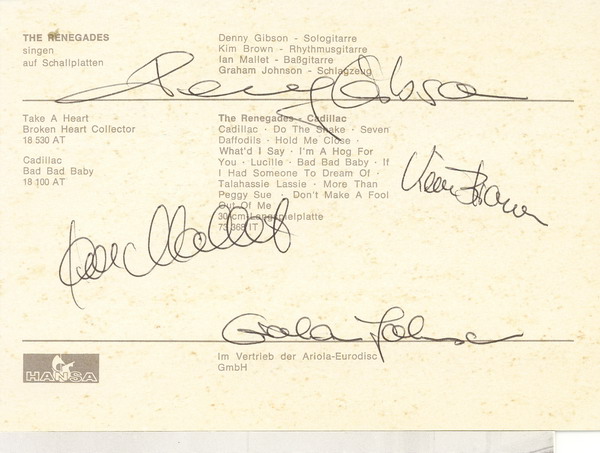 THE RENEGADES
singen
auf Schallplatten
Denny Gibson - Sologitarre
Kim Brown - Rhythmusgitarre
Ian Mallet - Baßgitarre
Graham Johnson - Schlagzeug
Denny Gibson
Take A Heart
Broken Heart Collector
18 530 AT
Cadillac
Bad Bad Baby
18 100 AT
The Renegades - Cadillac
Cadillac · Do The Shake · Seven
Daffodils · Hold Me Close ·
What'd I Say · I'm A Hog For
You · Lucille · Bad Bad Baby · If
I Had Someone To Dream Of ·
Talahassie Lassie · More Than
Peggy Sue · Don't Make A Fool
Out Of Me
30 cm Langspielplatte
73 368 IT
Kim Brown
Ian Mallet
Graham Johnson
HANSA
Im Vertrieb der Ariola-Eurodisc
GmbH